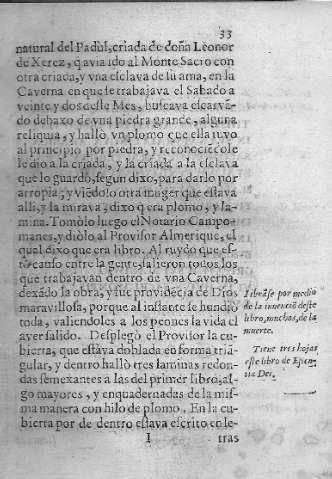 33
natural del Padul, criada de doña Leonor
de Xerez, q̃ avia ido al Monte Sacro con
otra criada, y vna esclava de su ama, en la
Caverna en que se trabajava el Sabado a
veinte y dos deste Mes, buscava escarvã-
do debaxo de vna piedra grande, alguna
reliquia, y hallò vn plomo que ella tuvo
al principio por piedra, y reconociẽdole
le dio a la criada, y la criada a la esclava
que lo guardò, segun dixo, para darlo por
arropia; y viẽdolo otra muger que estava
alli, y la mirava, dixo q̃ era plomo, y la-
mina. Tomòlo luego el Notario Campo-
manes, y diòlo al Provisor Almerique, el
qual dixo que era libro. Al ruydo que es-
to causo entre la gente, salieron todos los
que trabajavan dentro de vna Caverna,
dexãdo la obra, y fue providẽcia de Dios
maravillosa, porque al instante se hundiò
toda, valiendoles a los peones la vida el
aver salido. Desplegò el Provisor la cu-
bierta, que estava doblada en forma triã-
gular, y dentro hallò tres laminas redon-
das semexantes a las del primer libro, al-
go mayores, y enquadernadas de la mis-
ma manera con hilo de plomo. En la cu-
bierta por de dentro estava escrito en le-
I tras
Librãse por medio
de la invenciõ deste
libro, muchos, de la
muerte.
Tiene tres hojas
este libro de Essen-
tia Dei.